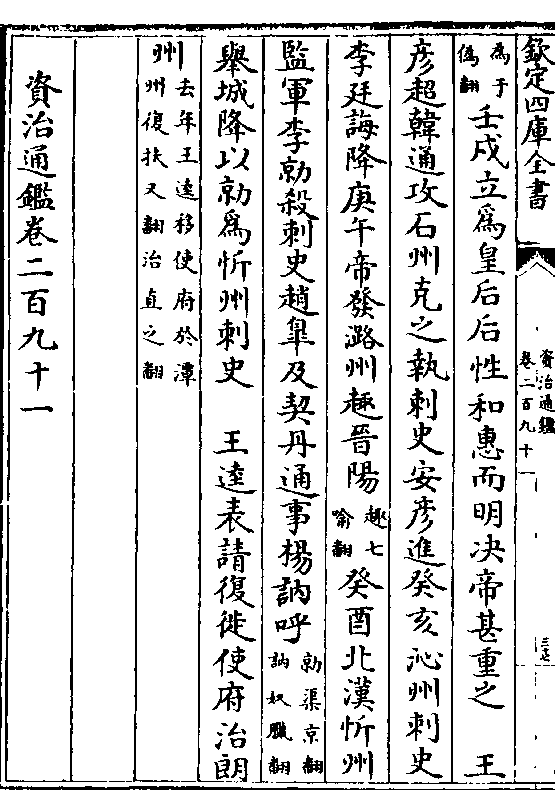 欽定四庫全書
資治通鑑
卷二百九十一
三七
為于
偽翻
壬戌立為皇后后性和惠而明决帝甚重之　王
彦超韓通攻石州克之執刺史安彦進癸亥沁州刺史
李廷誨降庚午帝發潞州趣晉陽
趣七
喻翻
癸酉北漢忻州
監軍李勍殺刺史趙臯及契丹通事楊訥呼
勍渠京翻
訥奴臘翻
舉城降以勍為忻州刺史　王逵表請復徙使府治朗
州
去年王逵移使府於潭
州復扶又翻治直之翻
資治通鑑卷二百九十一